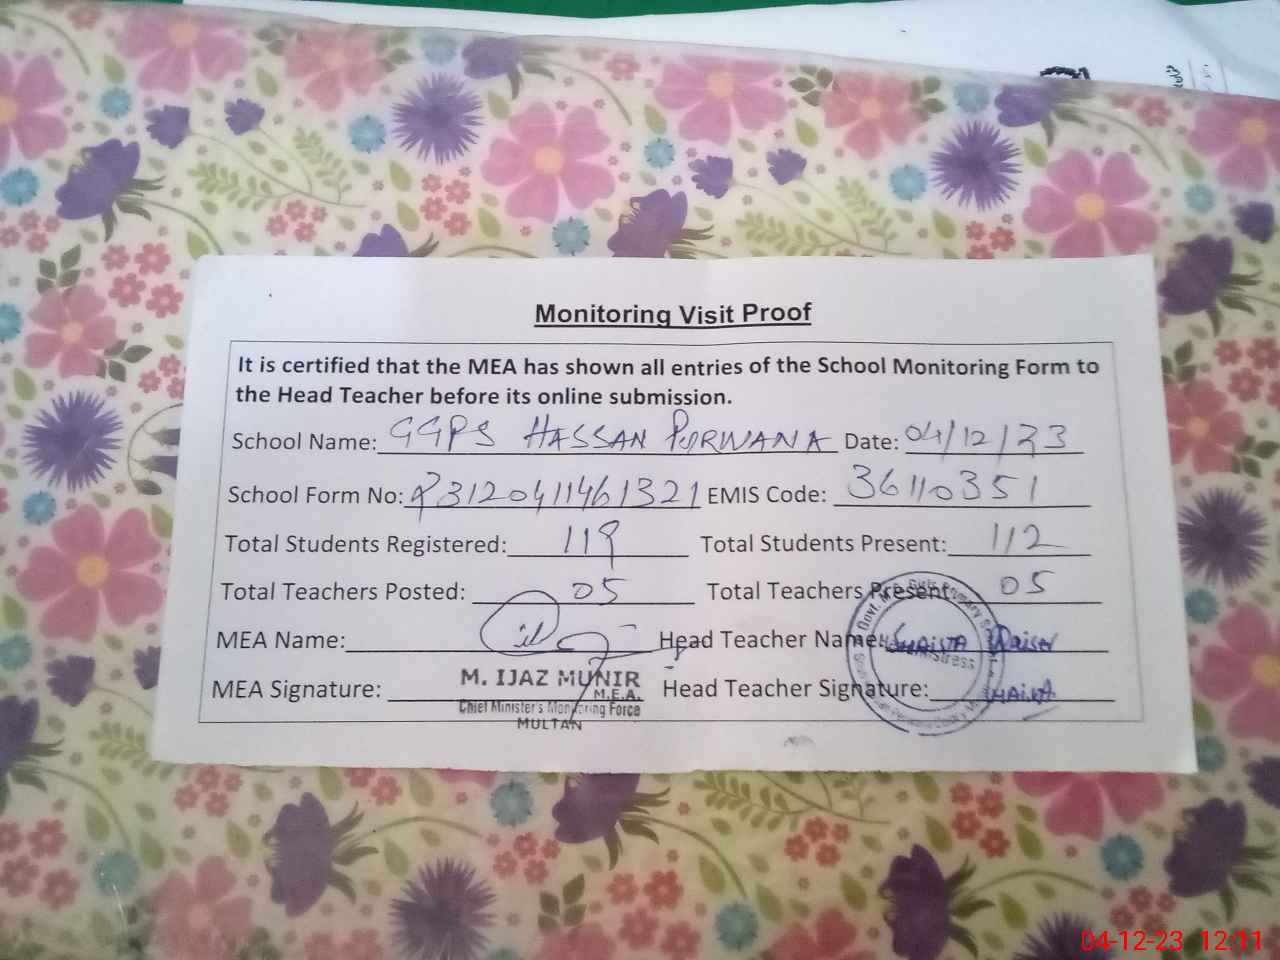 Monitoring Visit Proof
It is certified that the MEA has shown all entries of the School Monitoring Form to
the Head Teacher before its online submission.
School Name: GGPS HASSAN PURWANA Date: 04/12/23
School Form No: P3120411461321 EMIS Code: 36110351
Total Students Registered: 119 Total Students Present: 112
Total Teachers Posted: 05 Total Teachers Present: 05
MEA Name: Head Teacher Name: SHAISTA
MEA Signature: Head Teacher Signature:
M. IJAZ MUNIR
M.E.A.
Chief Minister's Monitoring Force
MULTAN
Headmistress
04-12-23 12:11